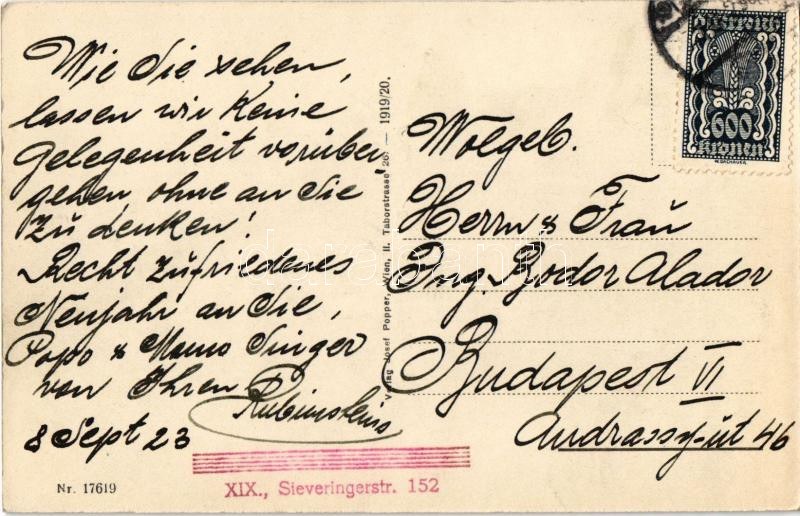 Wie Sie sehen,
lassen wir keine
Gelegenheit vorüber
gehen, ohne an Sie
zu denken!
Recht zufriedenes
Neujahr an Sie,
Papa & Mama Singer
von Ihren
Rubinsteins
8 Sept 23
Nr. 17619
XIX., Sieveringerstr. 152
Verlag Josef Popper, Wien, II. Taborstrasse 20. — 1919/20.
Österreich
600
Kronen
Wolgeb.
Herrn & Frau
Ing. Bodor Aladar
Budapest VI
Andrassy-ut 46